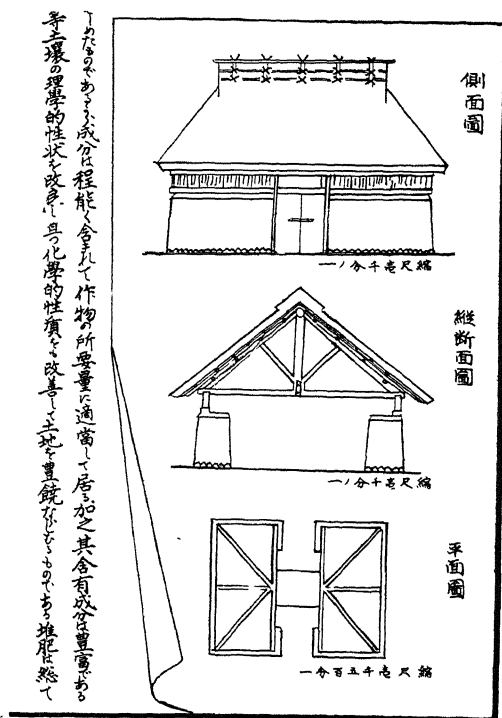 側面圖
縮尺壱千分ノ一
縦断面圖
縮尺壱千分ノ一
平面圖
縮尺壱千五百分一
しめたものであるから成分は程能く含まれて作物の所要量に適當して居る加之其含有成分は豊富である
等土壌の理學的性状を改良し且つ化學的性質をも改善して土地を豊饒ならしむるものである堆肥は総て